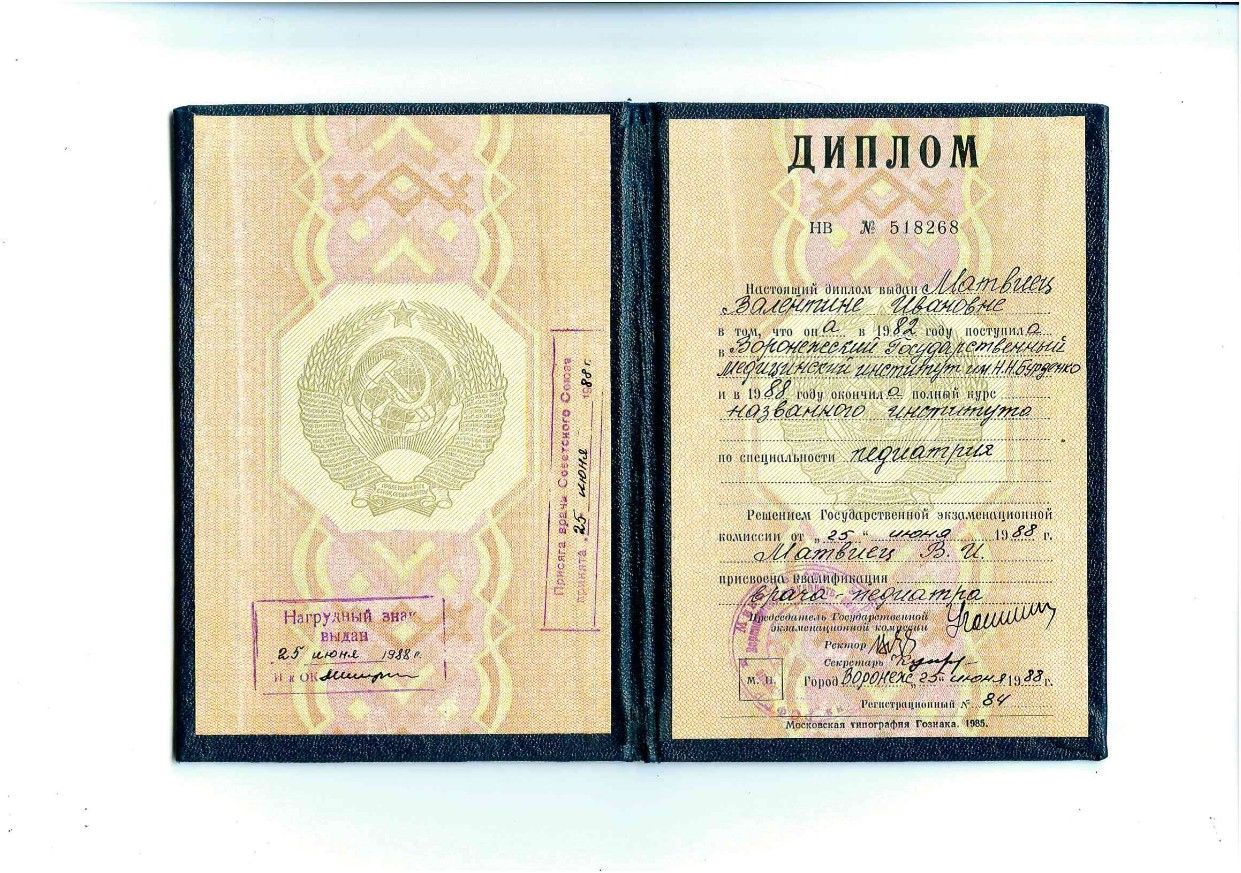 Нагрудный знак
выдан
25 июня 1988 г.
Присяга врача Советского Союза
принята „25 июня 1988 г.
ДИПЛОМ
НВ № 518268
Настоящий диплом выдан Матвиец
Валентине Ивановне
в том, что она в 1982 году поступила
в Воронежский Государственный
медицинский институт им Н.Н.Бурденко
и в 1988 году окончила полный курс
названного института
по специальности педиатрия
Решением Государственной экзаменационной
комиссии от „25“ июня 1988 г.
Матвиец В. И.
присвоена квалификация
врача педиатра
Председатель Государственной
экзаменационной комиссии
Ректор
Секретарь
М. П. Город Воронеж „25“ июня 1988 г.
Регистрационный № 84
Московская типография Гознака. 1985.